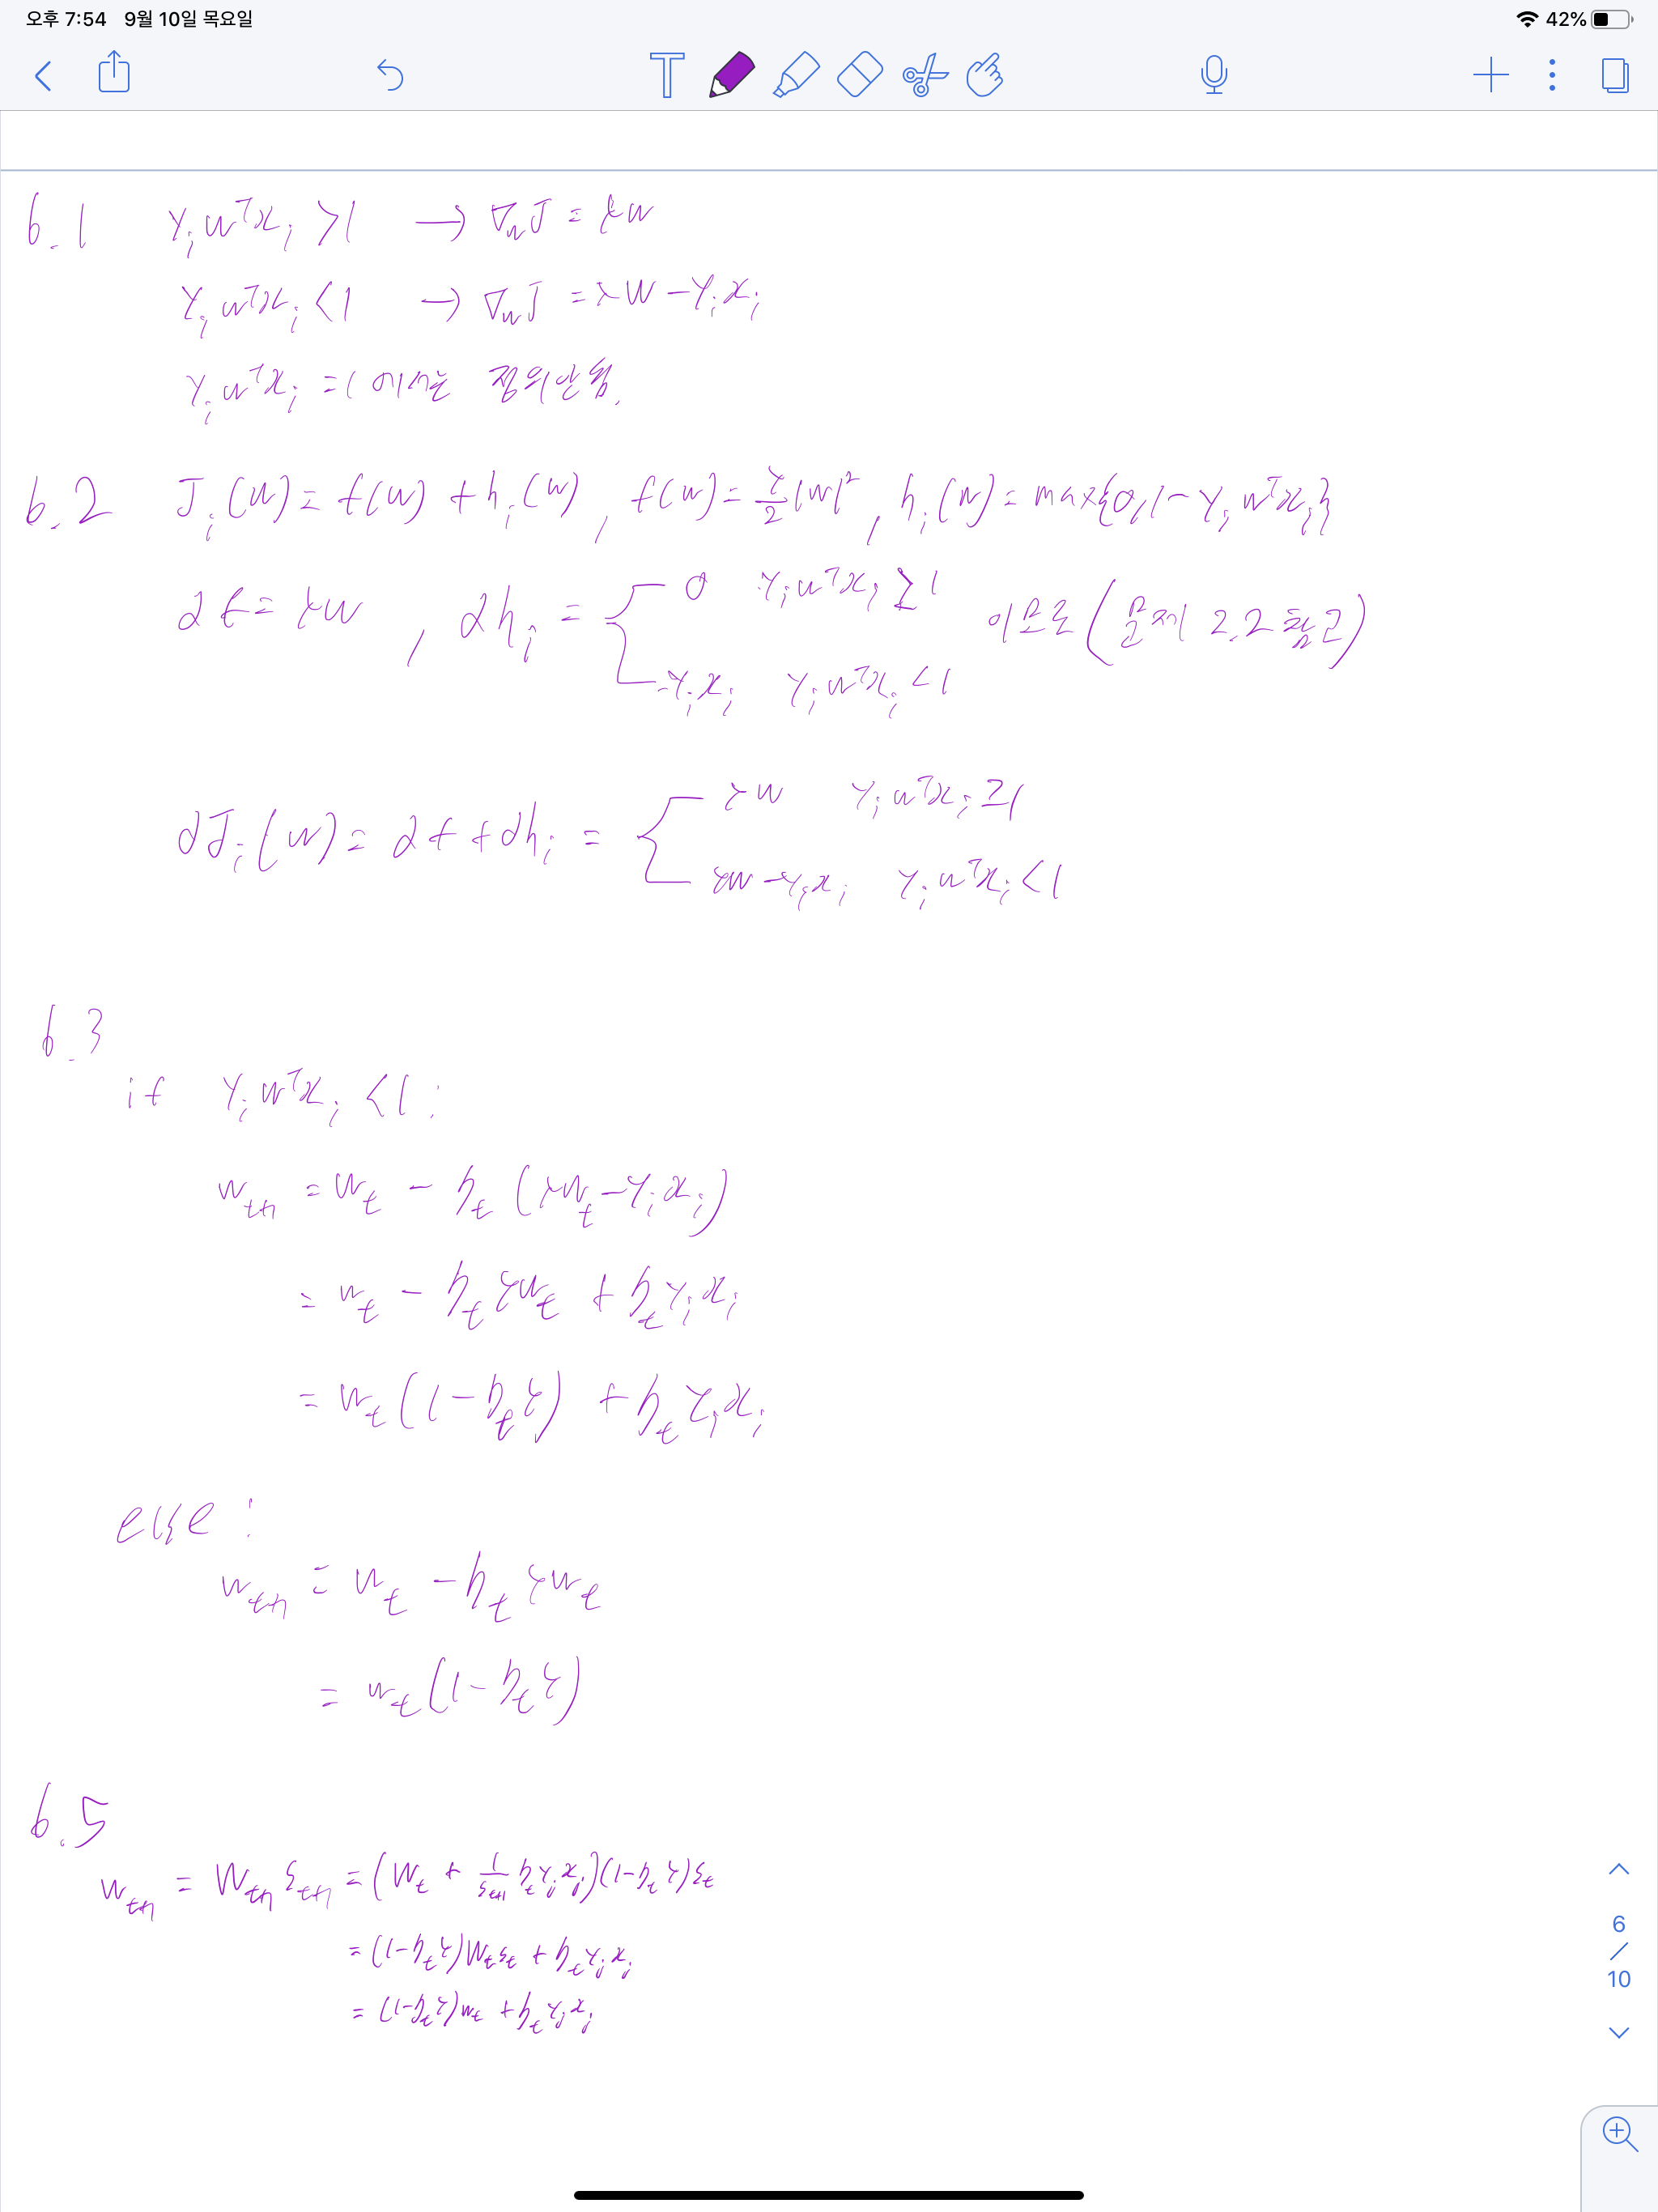 오후 7:54 9월 10일 목요일 42%
6.1 yᵢwᵀxᵢ >1 → ∇wJ = λw
yᵢwᵀxᵢ <1 → ∇wJ = λw − yᵢxᵢ
yᵢwᵀxᵢ =1 에서는 정의안됨.
6.2 Jᵢ(w) = f(w) + hᵢ(w), f(w) = λ/2 |w|², hᵢ(w) = max{0, 1 − yᵢwᵀxᵢ}
∂f = λw, ∂hᵢ = { 0 yᵢwᵀxᵢ ≥ 1 이므로 (문제 2.2 참고)
−yᵢxᵢ yᵢwᵀxᵢ <1
∂Jᵢ(w) = ∂f + ∂hᵢ = { λw yᵢwᵀxᵢ ≥1
λw − yᵢxᵢ yᵢwᵀxᵢ <1
6.3
if yᵢwᵀxᵢ <1 :
wₜ₊₁ = wₜ − ηₜ (λwₜ − yᵢxᵢ)
= wₜ − ηₜλwₜ + ηₜyᵢxᵢ
= wₜ(1 − ηₜλ) + ηₜyᵢxᵢ
else :
wₜ₊₁ = wₜ − ηₜλwₜ
= wₜ(1 − ηₜλ)
6.5
wₜ₊₁ = Wₜ₊₁Sₜ₊₁ = (Wₜ + 1/Sₜ₊₁ ηₜyⱼxⱼ)(1−ηₜλ)Sₜ
= (1−ηₜλ)WₜSₜ + ηₜyⱼxⱼ
= (1−ηₜλ)wₜ + ηₜyⱼxⱼ
6
/
10